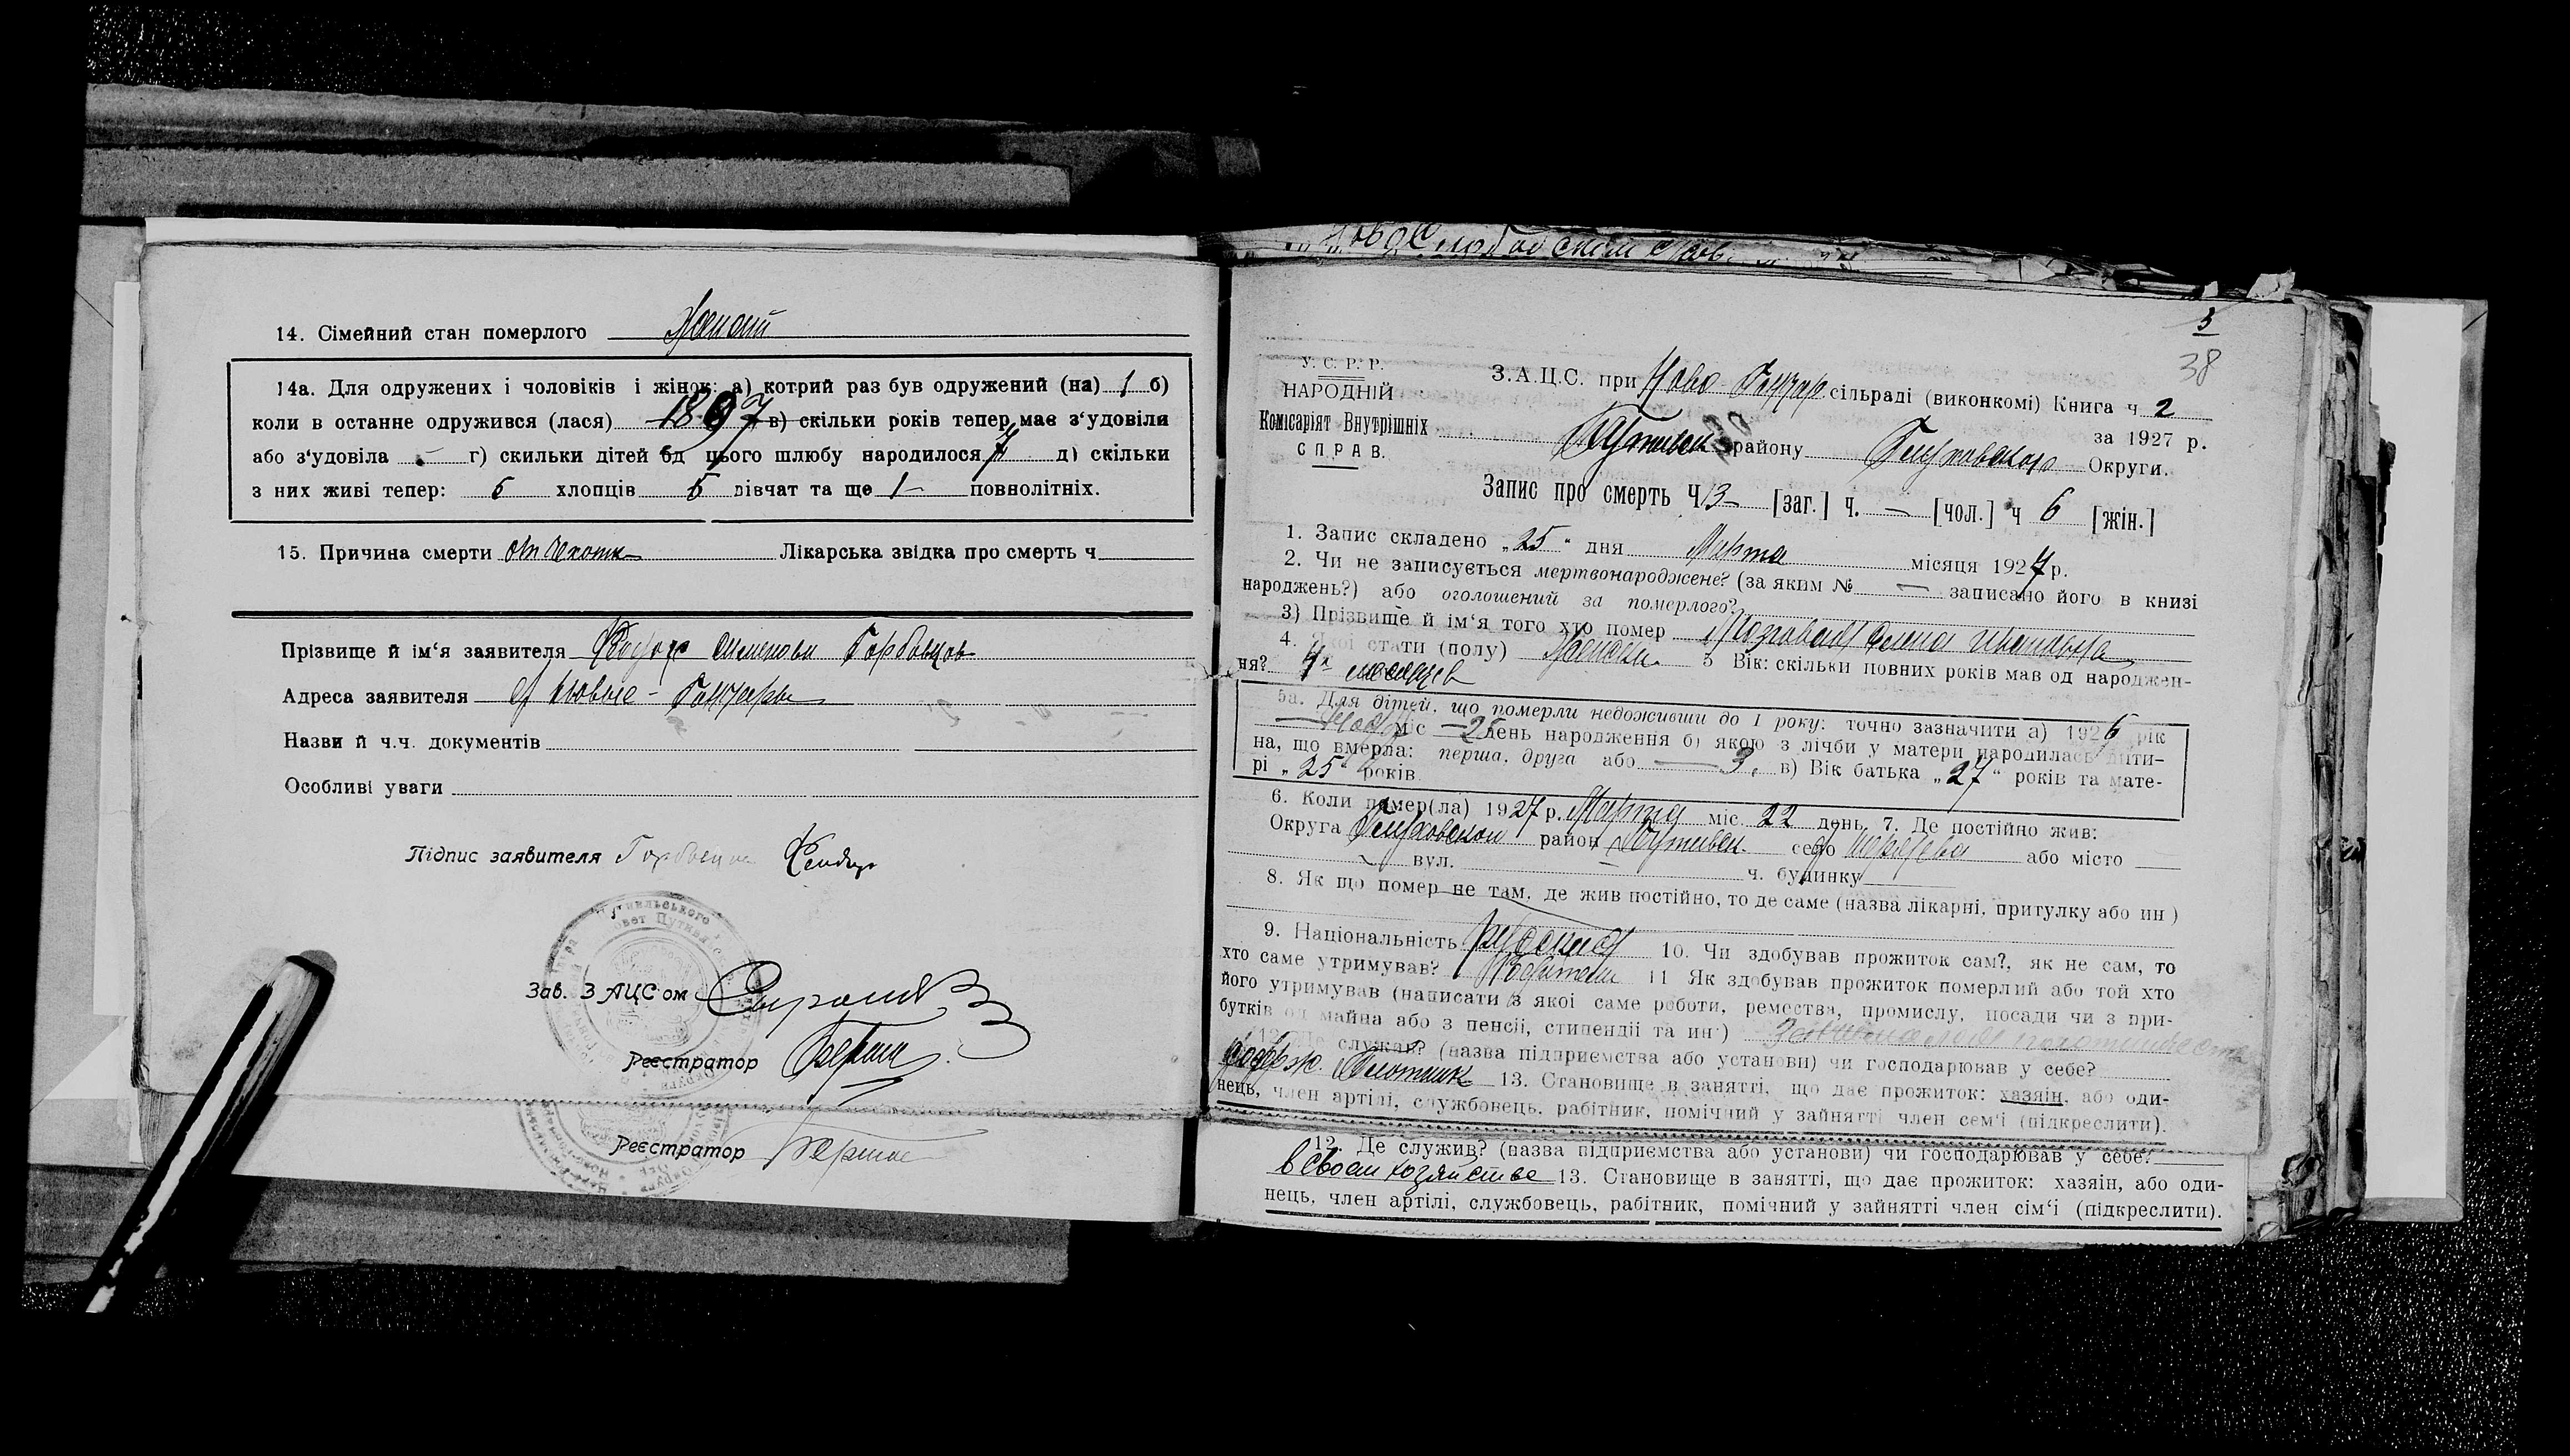 14. Сімейний стан померлого Женат
14а. Для одружених і чоловіків і жінок: а) котрий раз був одружений (на) 1 б)
коли в останне одружився (лася) 1897 в) скільки років тепер має з'удовіли
або з'удовіла - г) скильки дітей од цього шлюбу народилося д) скільки
з них живі тепер: хлопців 5 дівчат та ще 1 - повнолітніх.
15. Причина смерти Лікарська звідка про смерть ч
Прізвище й ім'я заявителя Горбовцов
Адреса заявителя Новые - Гончары
Назви й ч.ч. документів
Особливі уваги
Підпис заявителя
Зав. ЗАЦСом
Реєстратор
Реєстратор
3
38
У. С. Р. Р.
НАРОДНІЙ
Комісаріят Внутрішніх
СПРАВ.
З.А.Ц.С. при Ново-Гончар. сільраді (виконкомі) Книга ч 2
за 1927 р.
Путивльск району Глуховского Округи.
Запис про смерть Ч 3 - [заг.] ч. — [чол.] ч 6 [жін.]
1. Запис складено „25" дня Марта місяця 1927 р.
2. Чи не записується мертвонароджене? (за яким № — записано його в книзі
народжень?) або оголошений за померлого?
3) Прізвище й ім'я того хто помер Елена Ивановна
4. Якої стати (полу) Женск. 5 Вік: скільки повних років мав од народжен-
ня? 4х месяцев
5а. Для дітей, що померли недоживши до 1 року: точно зазначити а) 1926 рік
міс — 25 день народження б) якою з лічби у матери народилась дити-
на, що вмерла: перша, друга або — 3. в) Вік батька „27" років та мате-
рі „25" років.
6. Коли помер(ла) 1927 р. Марта міс. 22 день. 7. Де постійно жив:
Округа Глуховской район Путивльск. село або місто
вул. ч. будинку
8. Як що помер не там, де жив постійно, то де саме (назва лікарні, притулку або ин)
9. Національність русская 10. Чи здобував прожиток сам?, як не сам, то
хто саме утримував? Родители 11 Як здобував прожиток померлий або той хто
його утримував (написати з якої саме роботи, ремества, промислу, посади чи з при-
бутків од майна або з пенсії, стипендії та ин')
12. Де служив? (назва підприємства або установи) чи господарював у себе?
Плотник 13. Становище в занятті, що дає прожиток: хазяін, або оди-
нець, член артілі, службовець, рабітник, помічний у зайнятті член сем'ї (підкреслити).
12. Де служив? (назва підприємства або установи) чи господарював у себе?
в своем хозяйстве 13. Становище в занятті, що дає прожиток: хазяін, або оди-
нець, член артілі, службовець, рабітник, помічний у зайнятті член сім'ї (підкреслити).